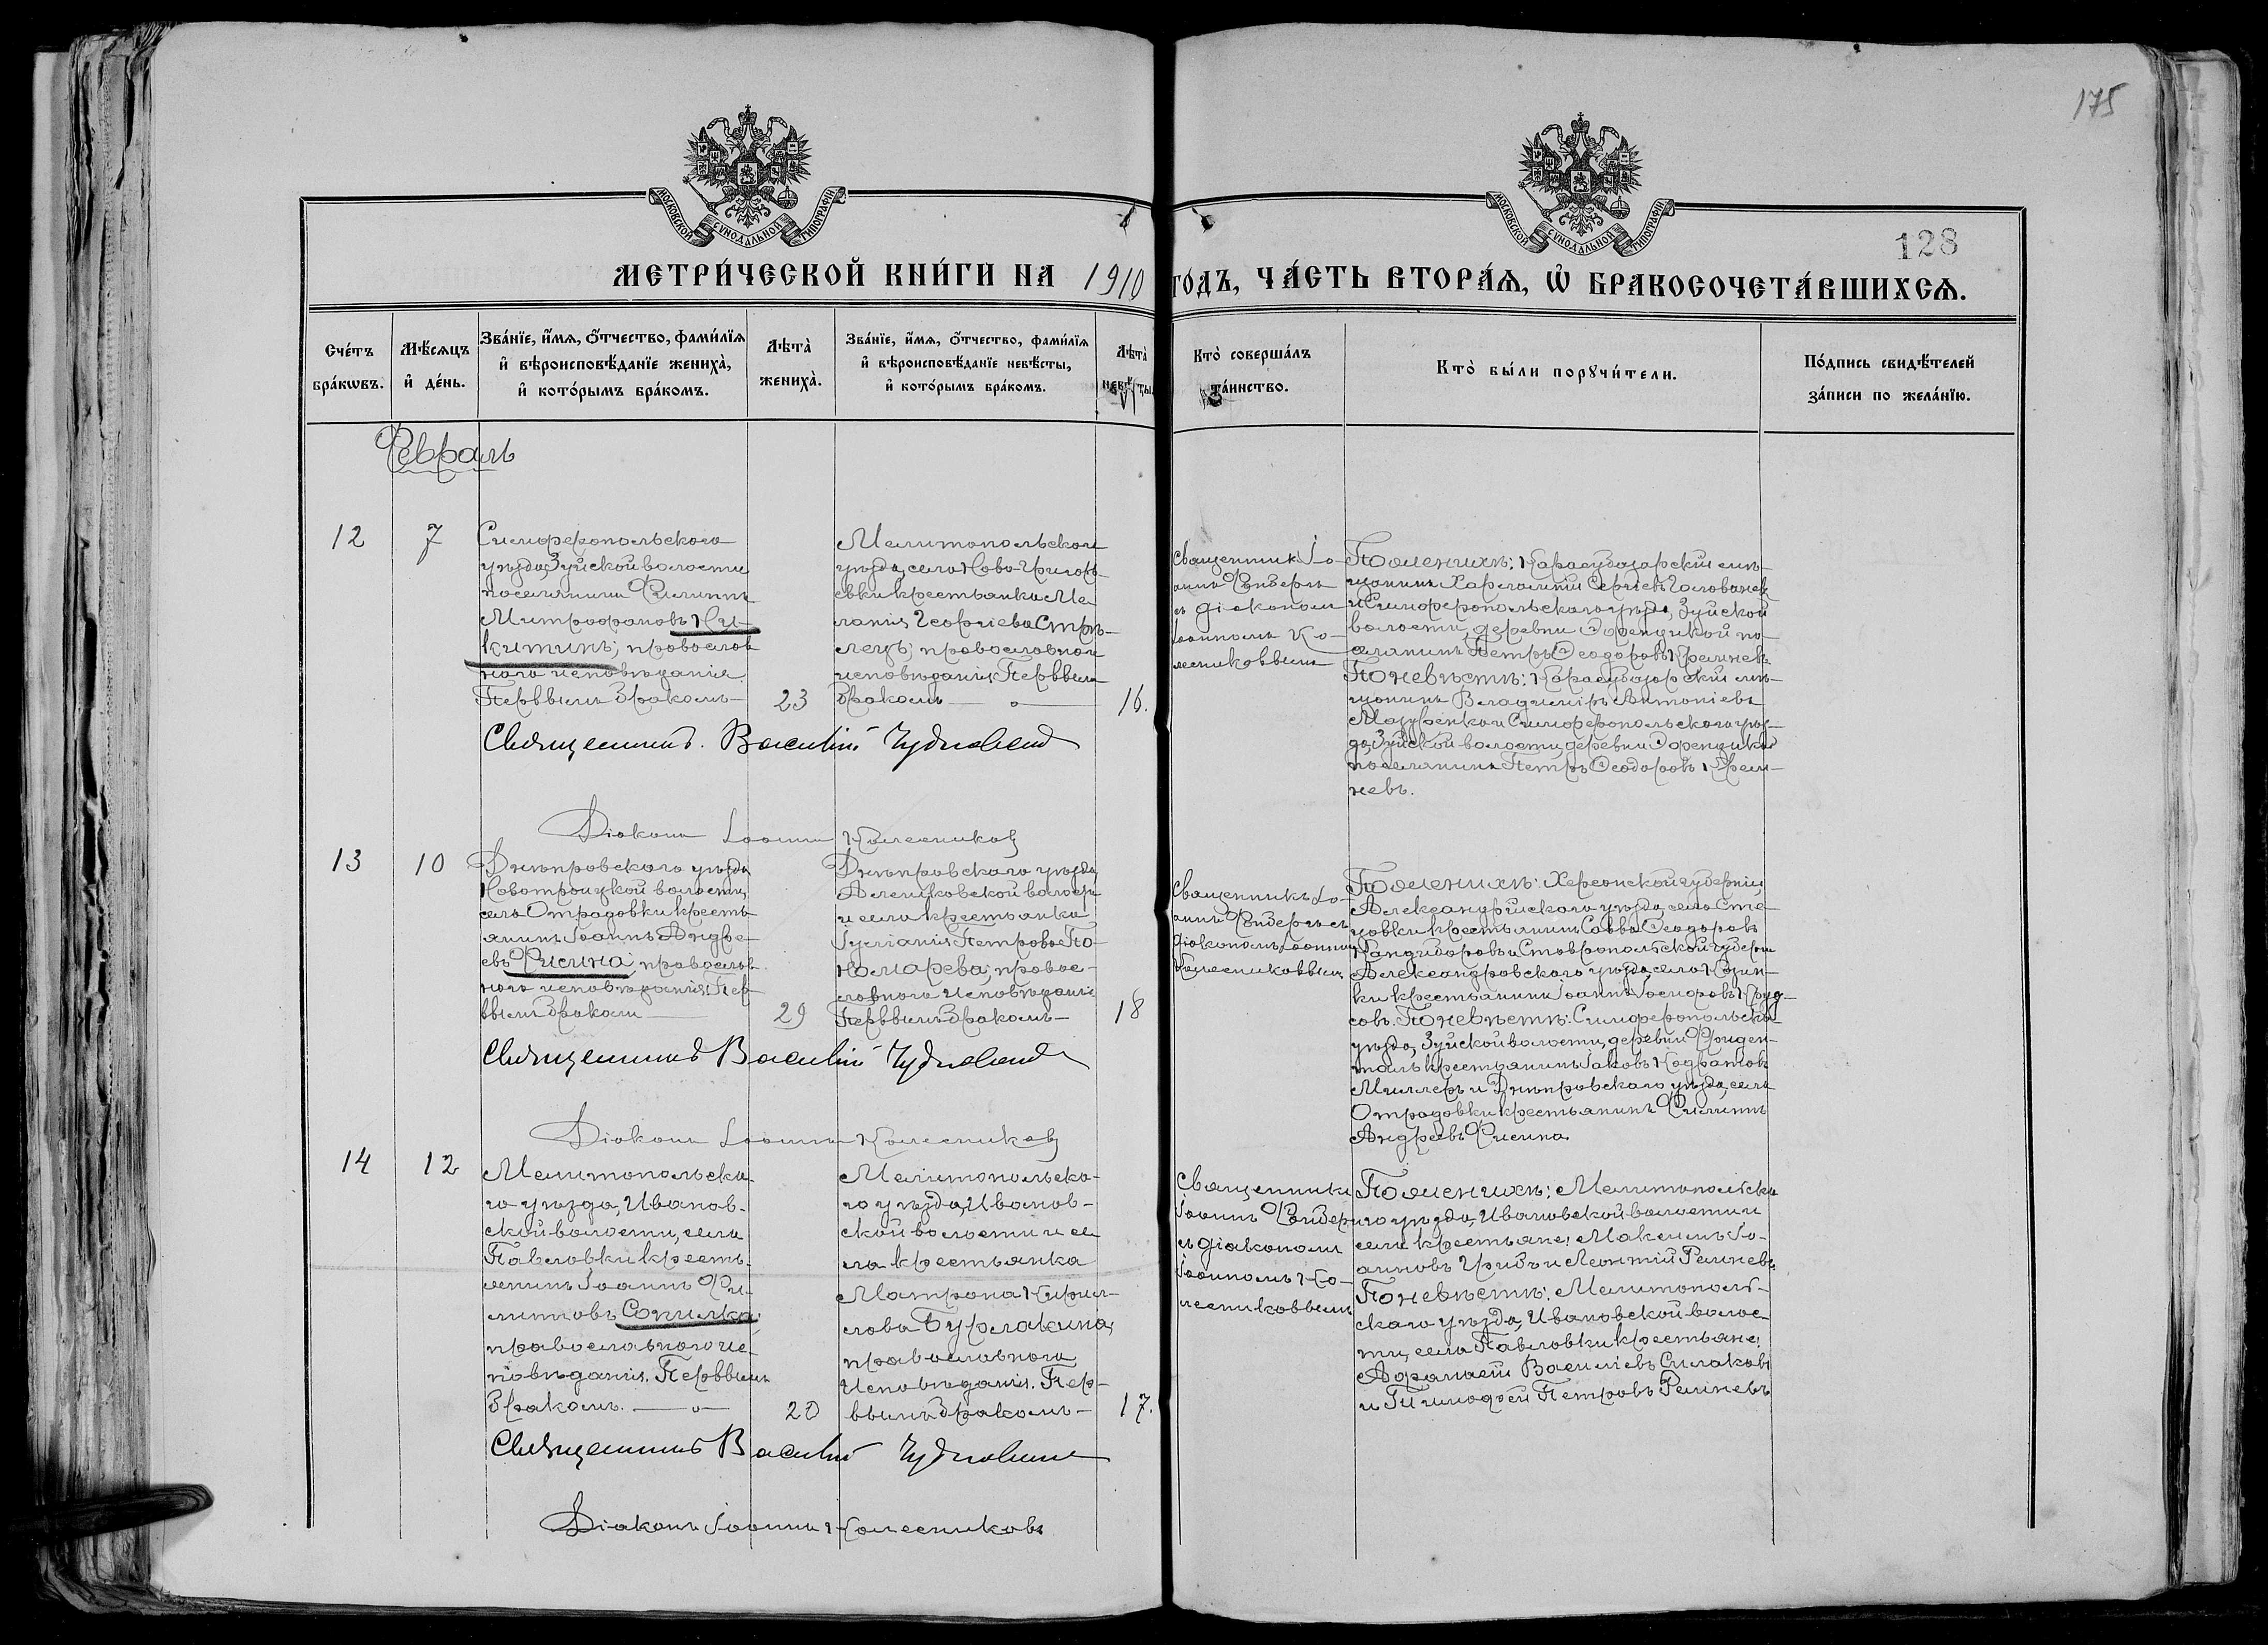 175
МОСКОВСКОЙ СУНОДАЛЬНОЙ ТИПОГРАФІИ
МОСКОВСКОЙ СУНОДАЛЬНОЙ ТИПОГРАФІИ
128
МЕТРИ́ЧЕСКОЙ КНИ́ГИ НА 1910 ГОДЪ, ЧА́СТЬ ВТОРА́Ѧ, Ѡ БРАКОСОЧЕТА́ВШИХСѦ.
Сче́тъ бра́кωвъ.
Мѣ́сѧцъ и҆ де́нь.
Зва́нїе, и҆́мѧ, ѻ҆́тчество, фами́лїѧ
и҆ вѣроисповѣ́данїе жениха̀,
и҆ кото́рымъ бра́комъ.
Лѣта̀
жениха̀.
Зва́нїе, и҆́мѧ, ѻ҆́тчество, фами́лїѧ
и҆ вѣроисповѣ́данїе невѣ́сты,
и҆ кото́рымъ бра́комъ.
Лѣта̀
невѣ́сты.
Кто̀ соверша́лъ
та́инство.
Кто̀ бы́ли порꙋчи́тели.
По́дпись свидѣ́телей
за́писи по жела́нїю.
Февраль
12
7
Симферопольскаго
уѣзда, Зуйской волости
поселянинъ Филиппъ
Митрофановъ Ни-
китинъ, православ
наго исповѣданія
Первымъ бракомъ
23
Мелитопольскаго
уѣзда, села Ново-Григорь-
евки крестьянка Ме
ланія Георгіева Стрѣ-
лецъ, православнаго
исповѣданія, Первымъ
бракомъ
16.
Священникъ Іо-
аннъ
съ діакономъ
Іоанномъ Ко-
лесниковымъ
По женихѣ: Карасубазарскій мѣ-
щанинъ Харлампій Сергіевъ Голованев
и Симферопольскаго уѣзда, Зуйской
волости, деревни по-
селянинъ Петръ Ѳеодоровъ
По невѣстѣ: Карасубазарскій мѣ-
щанинъ Владиміръ Антоніевъ
Мазуренко и Симферопольскаго уѣз-
да, Зуйской волости, деревни
поселянинъ Петръ Ѳеодоровъ
невъ.
Священникъ Василій Чудновскій
Діаконъ Іоаннъ Колесниковъ
13
10
Днѣпровскаго уѣзда
Новотроицкой волости,
села Отрадовки кресть
янинъ Іоаннъ Андре
евъ Фисина, православ
наго исповѣданія, Пер
вымъ бракомъ
29
Днѣпровскаго уѣзда
Алешковской волости
и села крестьянка
Іуліанія Петрова По-
номарева, правос-
лавнаго исповѣданія
Первымъ бракомъ
18
Священникъ Іо-
аннъ съ
діакономъ Іоанномъ
Колесниковымъ
По женихѣ: Херсонской губерніи,
Александрійскаго уѣзда, села Сте-
цовки крестьянинъ Савва Ѳеодоровъ
Кандидоровъ и Ставропольской губерніи
Александровскаго уѣзда, села
ки крестьянинъ Іоаннъ Іосифовъ
совъ. По невѣстѣ: Симферопольска
уѣзда, Зуйской волости, деревни Фриден-
таль крестьянинъ Іаковъ Кодратов
Миллеръ и Днѣпровскаго уѣзда, села
Отрадовки крестьянинъ Филиппъ
Андреевъ Фисина
Священникъ Василій Чудновскій
Діаконъ Іоаннъ Колесниковъ
14
12
Мелитопольска-
го уѣзда, Иванов-
ской волости, села
Павловки кресть-
янинъ Іоаннъ Фи-
липповъ Сопилка,
православнаго ис-
повѣданія. Первымъ
бракомъ.
20
Мелитопольска-
го уѣзда, Иванов-
ской волости и се
ла крестьянка
Матрона Кирил-
лова Бурлакина,
православнаго
исповѣданія. Пер-
вымъ бракомъ
17.
Священникъ
Іоаннъ
съ діакономъ
Іоанномъ Ко-
лесниковымъ
По женихѣ: Мелитопольска
го уѣзда, Ивановской волости и
села крестьяне: Максимъ Іо-
анновъ Грибъ и Леонтій Репневъ
По невѣстѣ: Мелитополь-
скаго уѣзда, Ивановской волос-
ти, села Павловки крестьяне:
Афанасій Василіевъ Силаковъ
и Тимофей Петровъ Репневъ
Священникъ Василій Чудновскій
Діаконъ Іоаннъ Колесниковъ